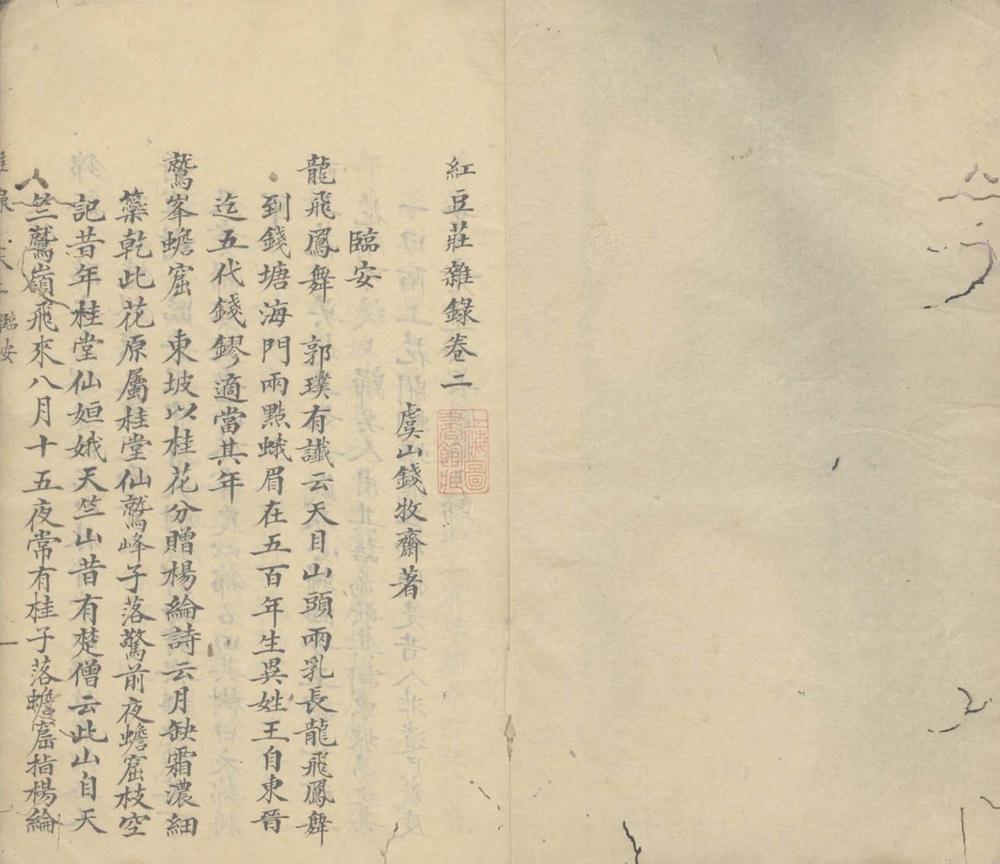 紅豆莊雜錄卷二
虞山錢牧齋著
臨安
龍飛鳳舞 郭璞有讖云天目山頭兩乳長龍飛鳳舞
到錢塘海門兩點蛾眉在五百年生異姓王自東晉
迄五代錢鏐適當其年
鷲峯蟾窟 東坡以桂花分贈楊綸詩云月缺霜濃細
蘂乾此花原屬桂堂仙鷲峰子落驚前夜蟾窟枝空
記昔年桂堂仙姮娥天竺山昔有楚僧云此山自天
竺鷲嶺飛來八月十五夜常有桂子落蟾窟指楊綸
臨安
一